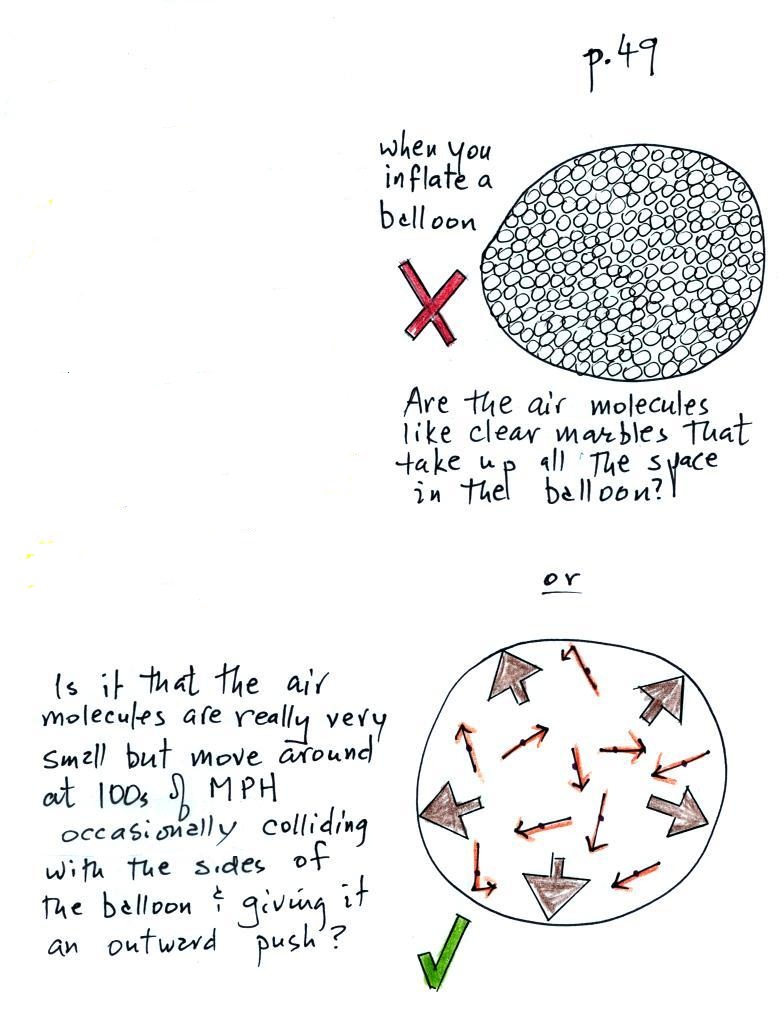 p.49
when you
inflate a
balloon
Are the air molecules
like clear marbles that
take up all the space
in the balloon?
or
Is it that the air
molecules are really very
small but move around
at 100s of MPH
occasionally colliding
with the sides of
the balloon & giving it
an outward push?